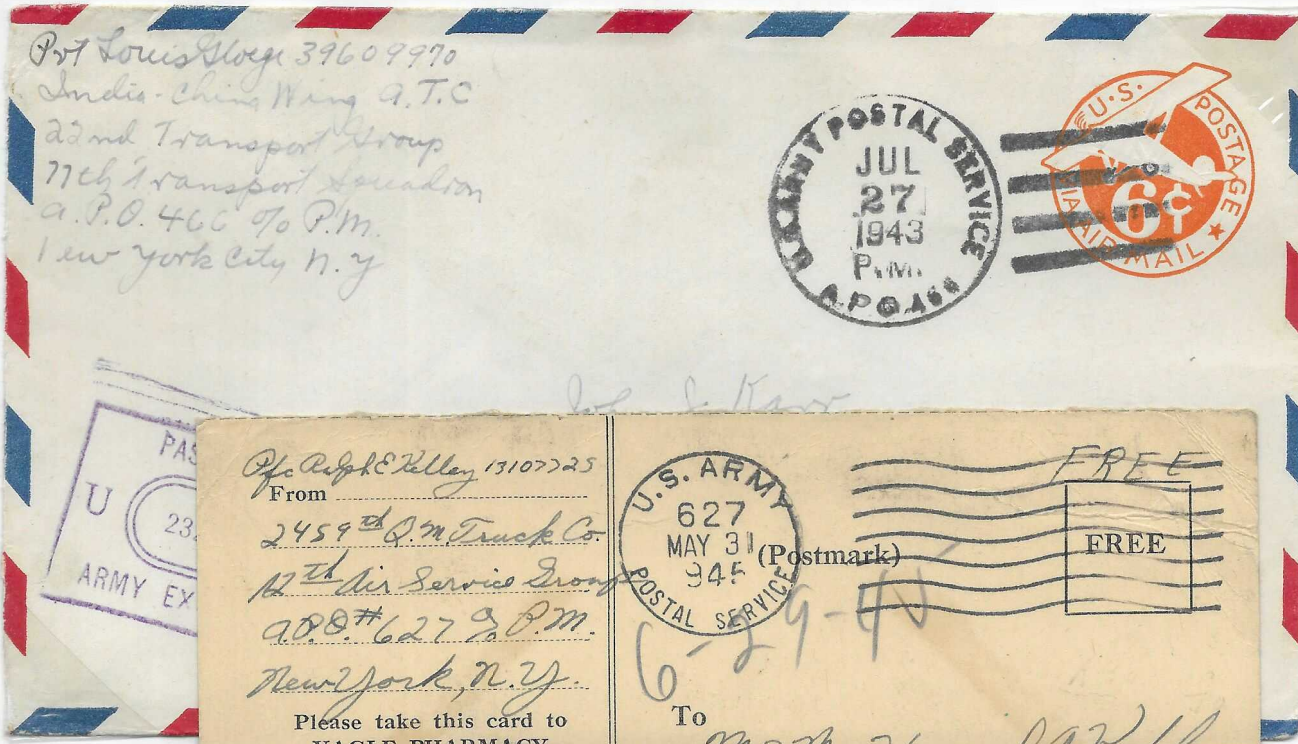 Pvt Louis Gloege 39609970
India-China Wing A.T.C
22nd Transport Group
77th Transport Squadron
A.P.O. 466 c/o P.M.
New York City N.Y
U.S. ARMY POSTAL SERVICE
JUL
27
1943
P.M.
A.P.O. 466
U.S. POSTAGE
6¢
VIA AIR MAIL
PAS
U
23
ARMY EX
Pfc Ralph E Kelley 13107725
From
2459th Q.M. Truck Co.
12th Air Service Group
A.P.O.# 627 % P.M.
New York, N.Y.
Please take this card to
YAGLE PHARMACY
U.S. ARMY
627
MAY 31
945
POSTAL SERVICE
(Postmark)
FREE
FREE
6-29-45
To